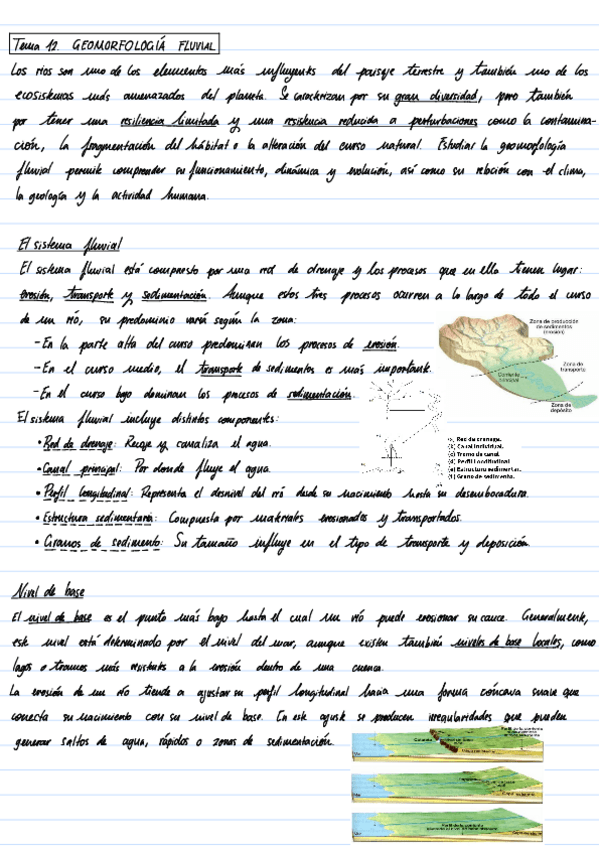 Tema 12. GEOMORFOLOGÍA FLUVIAL
Los ríos son uno de los elementos más influyentes del paisaje terrestre y también uno de los
ecosistemas más amenazados del planeta. Se caracterizan por su gran diversidad, pero también
por tener una resiliencia limitada y una resistencia reducida a perturbaciones como la contamina-
ción, la fragmentación del hábitat o la alteración del curso natural. Estudiar la geomorfología
fluvial permite comprender su funcionamiento, dinámica y evolución, así como su relación con el clima,
la geología y la actividad humana.
El sistema fluvial
El sistema fluvial está compuesto por una red de drenaje y los procesos que en ella tienen lugar:
erosión, transporte y sedimentación. Aunque estos tres procesos ocurren a lo largo de todo el curso
de un río, su predominio varía según la zona:
- En la parte alta del curso predominan los procesos de erosión.
- En el curso medio, el transporte de sedimentos es más importante.
- En el curso bajo dominan los procesos de sedimentación.
Zona de producción
de sedimentos
(erosión)
Zona de
transporte
Corriente
principal
Zona de
depósito
El sistema fluvial incluye distintos componentes:
• Red de drenaje: Recoge y canaliza el agua.
• Canal principal: Por donde fluye el agua.
• Perfil longitudinal: Representa el desnivel del río desde su nacimiento hasta su desembocadura.
• Estructura sedimentaria: Compuesta por materiales erosionados y transportados.
• Granos de sedimento: Su tamaño influye en el tipo de transporte y deposición.
Red de drenaje.
Canal individual.
(c) Tramo de canal.
(d) Perfil longitudinal
(e) Estructura sedimentar.
(f) Grano de sedimento.
Nivel de base
El nivel de base es el punto más bajo hasta el cual un río puede erosionar su cauce. Generalmente,
este nivel está determinado por el nivel del mar, aunque existen también niveles de base locales, como
lagos o tramos más resistentes a la erosión dentro de una cuenca.
La erosión de un río tiende a ajustar su perfil longitudinal hacia una forma cóncava suave que
conecta su nacimiento con su nivel de base. En este ajuste se producen irregularidades que pueden
generar saltos de agua, rápidos o zonas de sedimentación.